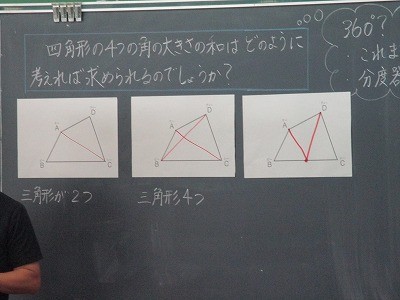 四角形の4つの角の大きさの和は どのように
考えれば求められるのでしょうか?
360°?
・これま
・分度器
A
D
B
C
A
D
B
C
A
D
B
C
三角形が2つ
三角形4つ